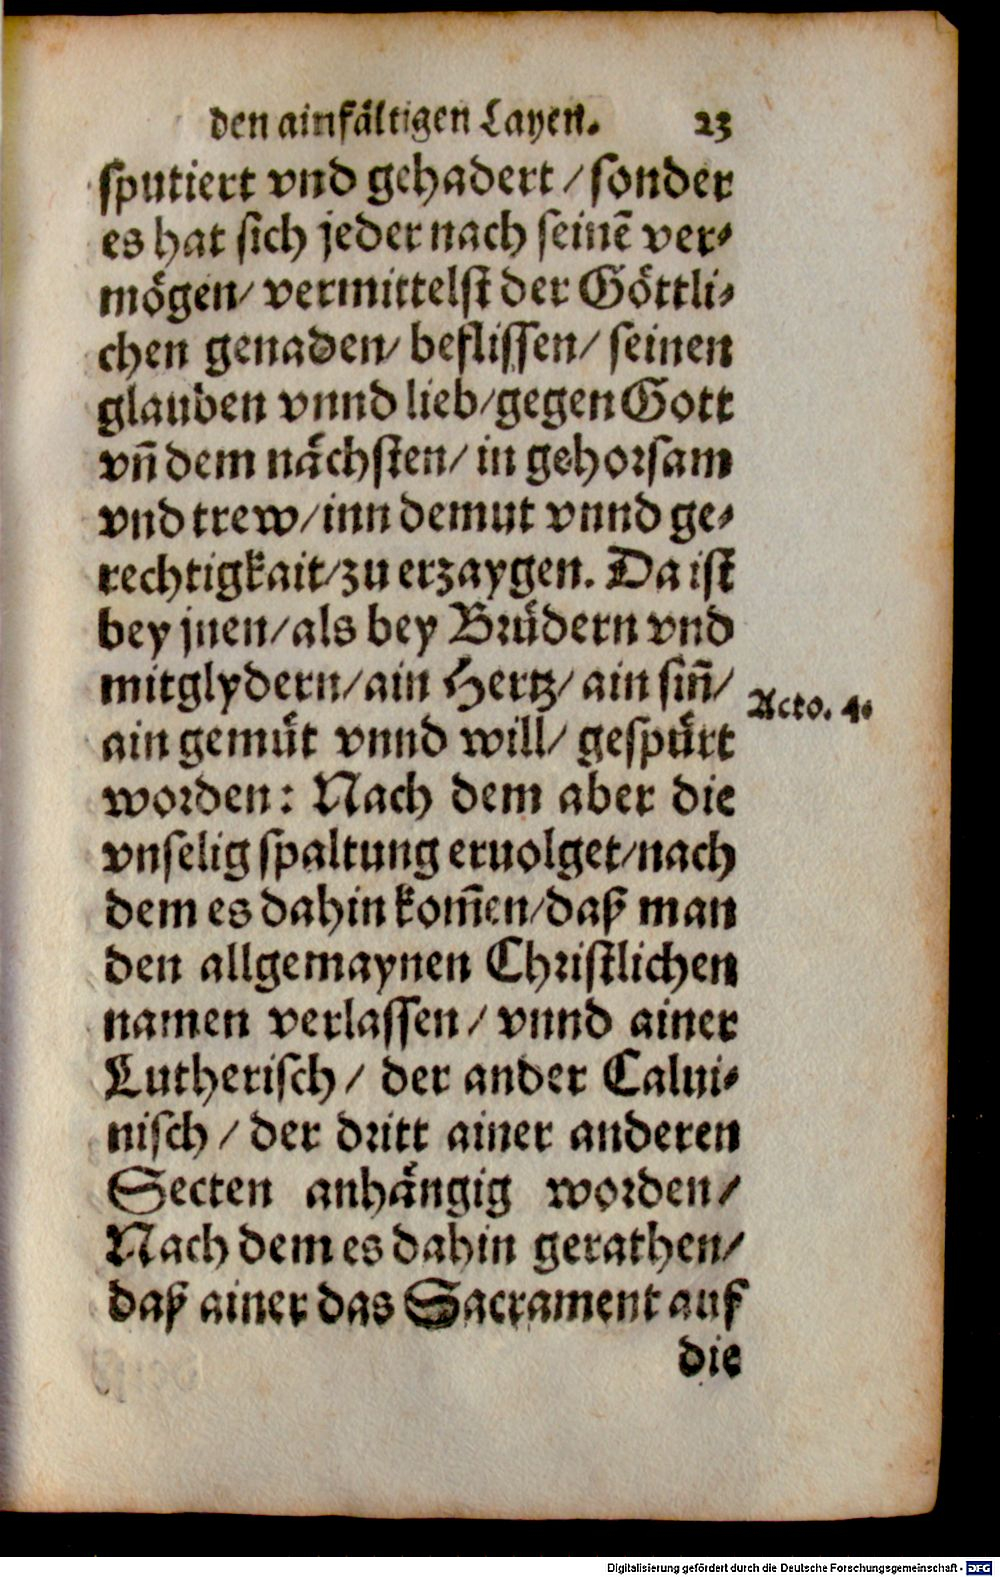 den ainfaͤltigen Layen. 23
sputiert vnd gehadert / sonder
es hat sich jeder nach seinē ver⸗
moͤgen / vermittelst der Goͤttli⸗
chen genaden / beflissen / seinen
glauben vnnd lieb / gegen Gott
vn̄ dem naͤchsten / in gehorsam
vnd trew / inn demut vnnd ge⸗
rechtigkait / zu erzaygen. Da ist
bey jnen / als bey Bruͤdern vnd
mitglydern / ain Hertz / ain sin̄ /
Acto. 4.
ain gemuͤt vnnd will / gespuͤrt
worden: Nach dem aber die
vnselig spaltung eruolget / nach
dem es dahin kom̄en / daß man
den allgemaynen Christlichen
namen verlassen / vnnd ainer
Lutherisch / der ander Calui⸗
nisch / der dritt ainer anderen
Secten anhaͤngig worden /
Nach dem es dahin gerathen /
daß ainer das Sacrament auf
die
Digitalisierung gefördert durch die Deutsche Forschungsgemeinschaft - DFG